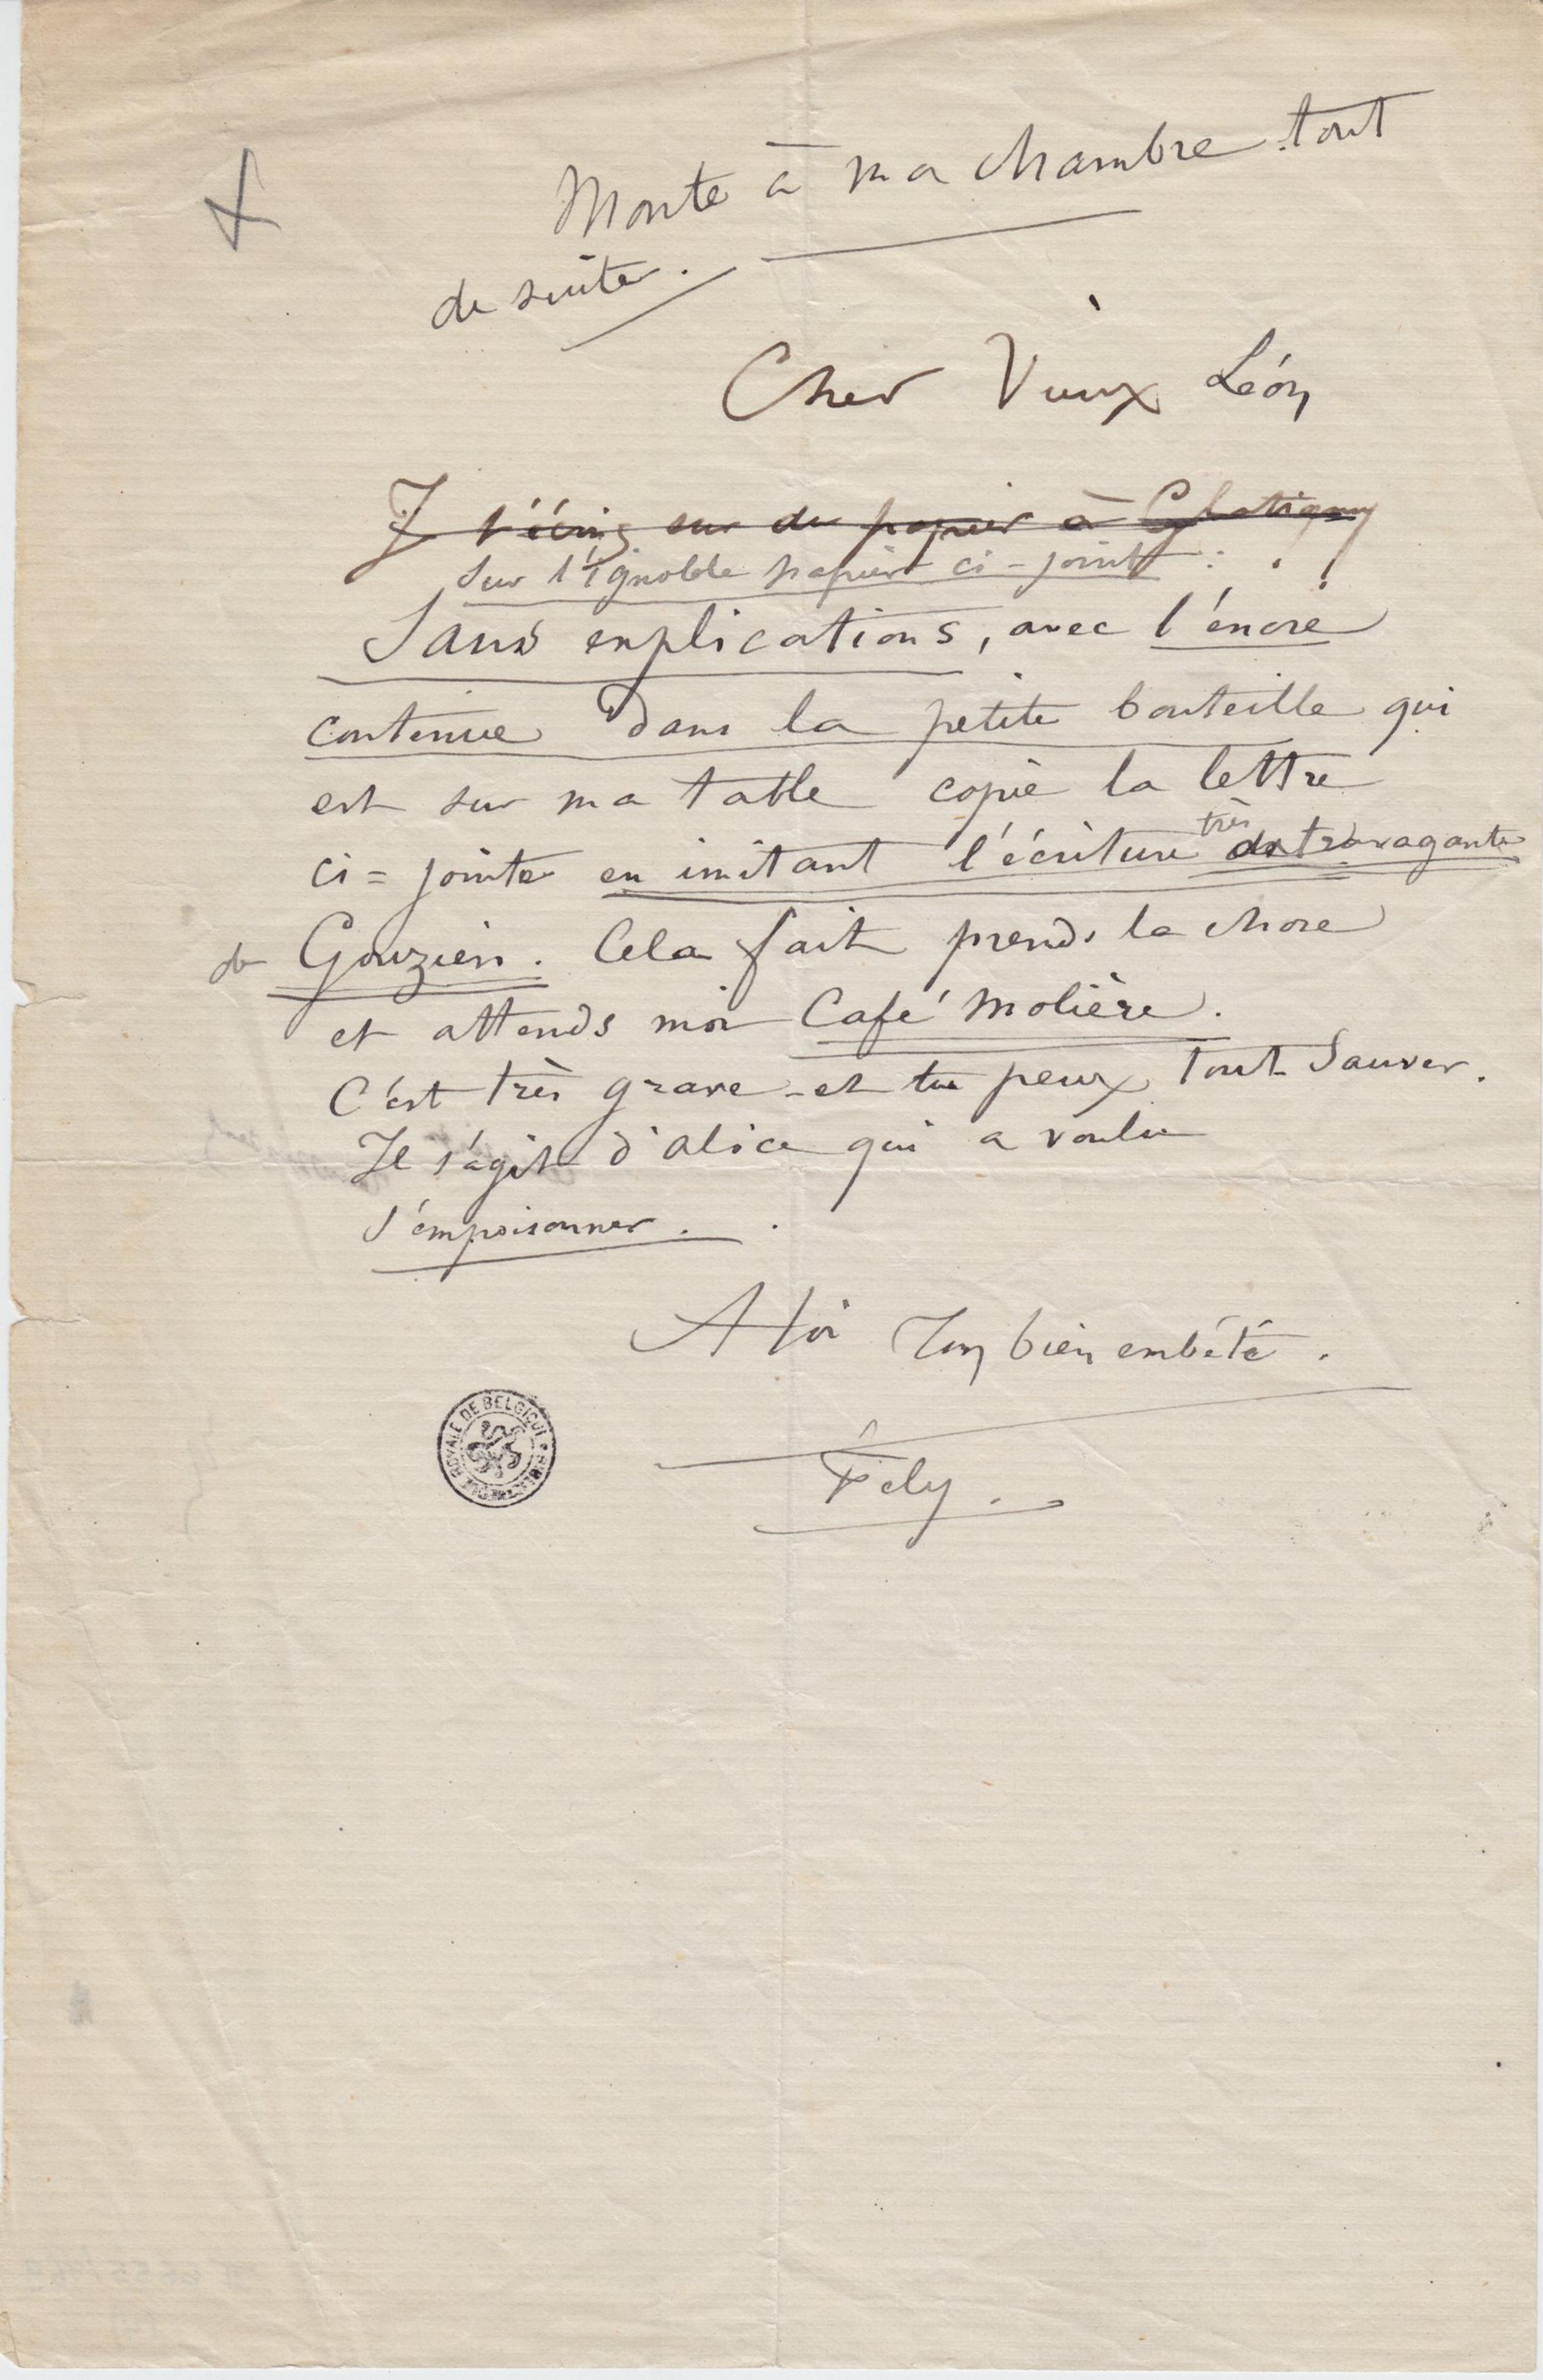 Monte à ma chambre tout
de suite.
Cher Vieux Léon
Je t'écris sur du papier à Glatigny
sur l'ignoble papier ci-joint
Sans explications, avec l'encre
contenue dans la petite bouteille qui
est sur ma table copie la lettre
très
ci=jointe en imitant l'écriture extravagante
de Gouzien. Cela fait prends la chose
et attends moi Café Molière.
C'est très grave et tu peux tout sauver.
Il s'agit d'alice qui a voulu
s'empoisonner.
A toi Ton bien embêté.
Fély.
BIBLIOTHÈQUE ROYALE DE BELGIQUE